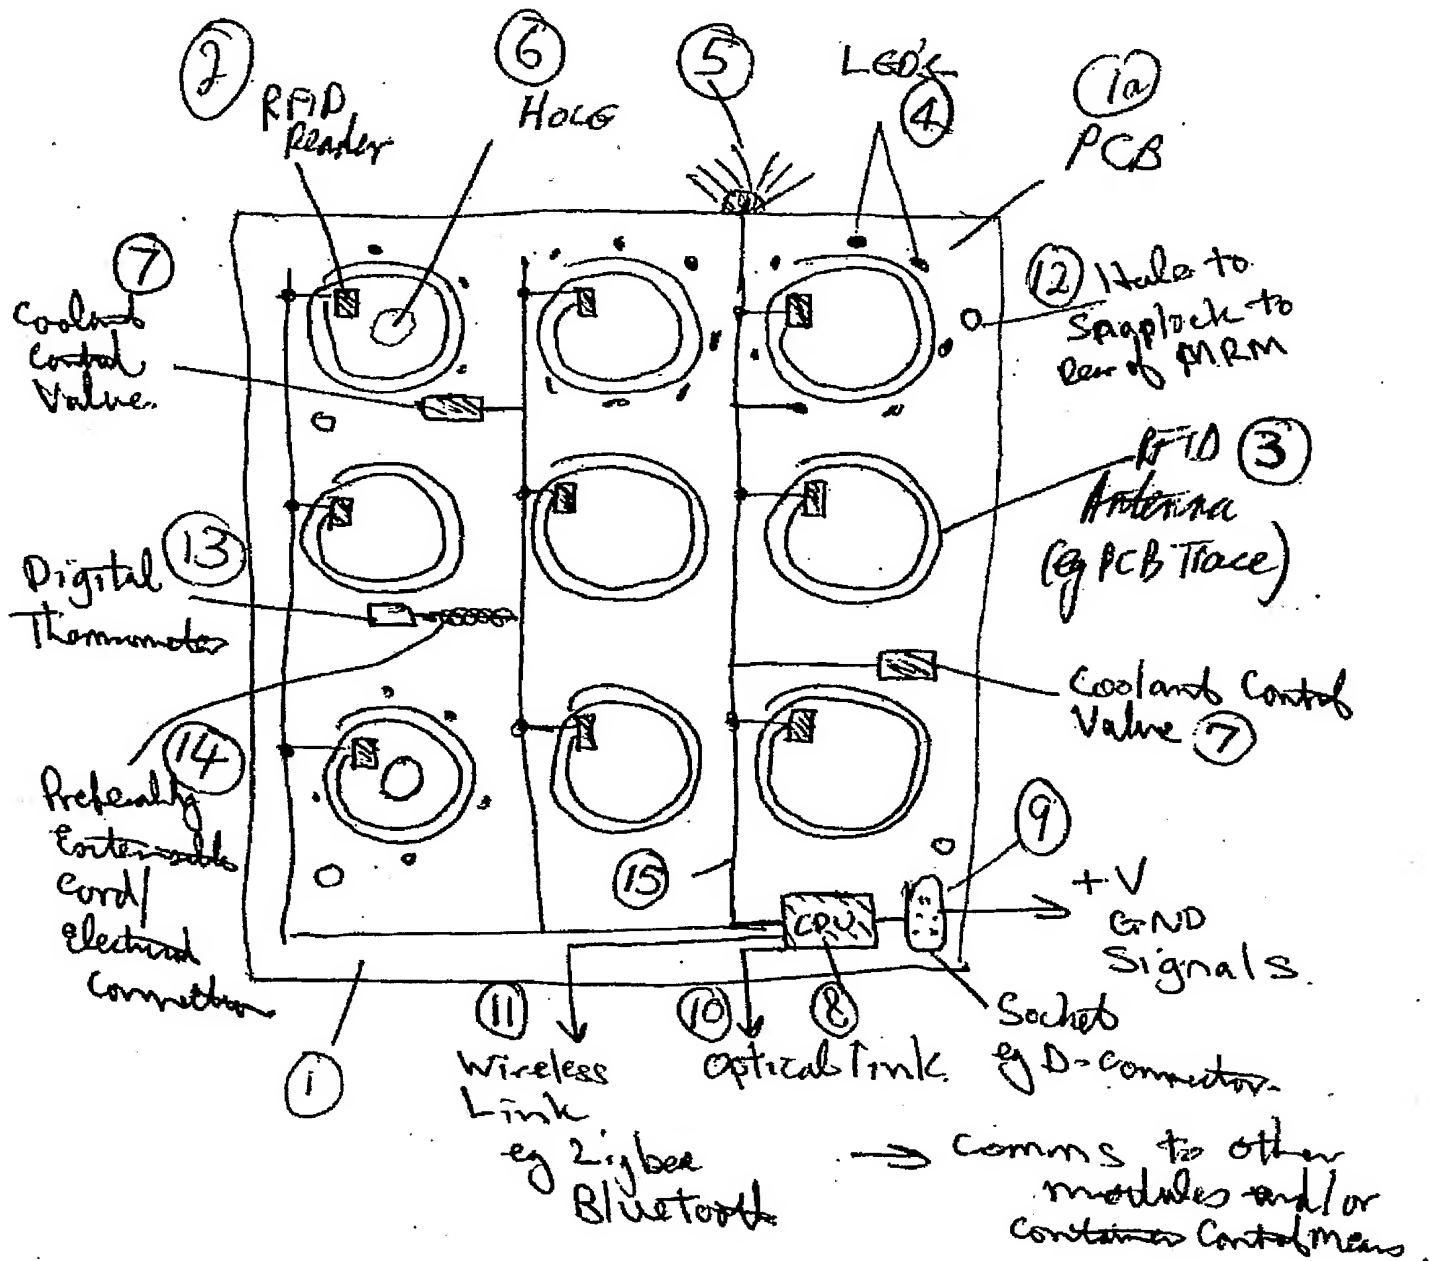 2
RFID
Reader
6
HOLE
5
LED's
4
1a
PCB
7
Coolant
Control
Valve.
12 Hole to
Snaplock to
Rear of MRM
RFID 3
Antenna
(eg PCB Trace)
13
Digital
Thermometer
Coolant Control
Valve 7
14
Preferably
Extensible
Cord/
Electrical
Connection
9
15
CPU
+V
GND
Signals.
11
10
8
1
Wireless
Link
eg Zigbee
Bluetooth
Optical link.
Socket
eg D-connector.
→ Comms to other
modules and/or
Container Control Means.